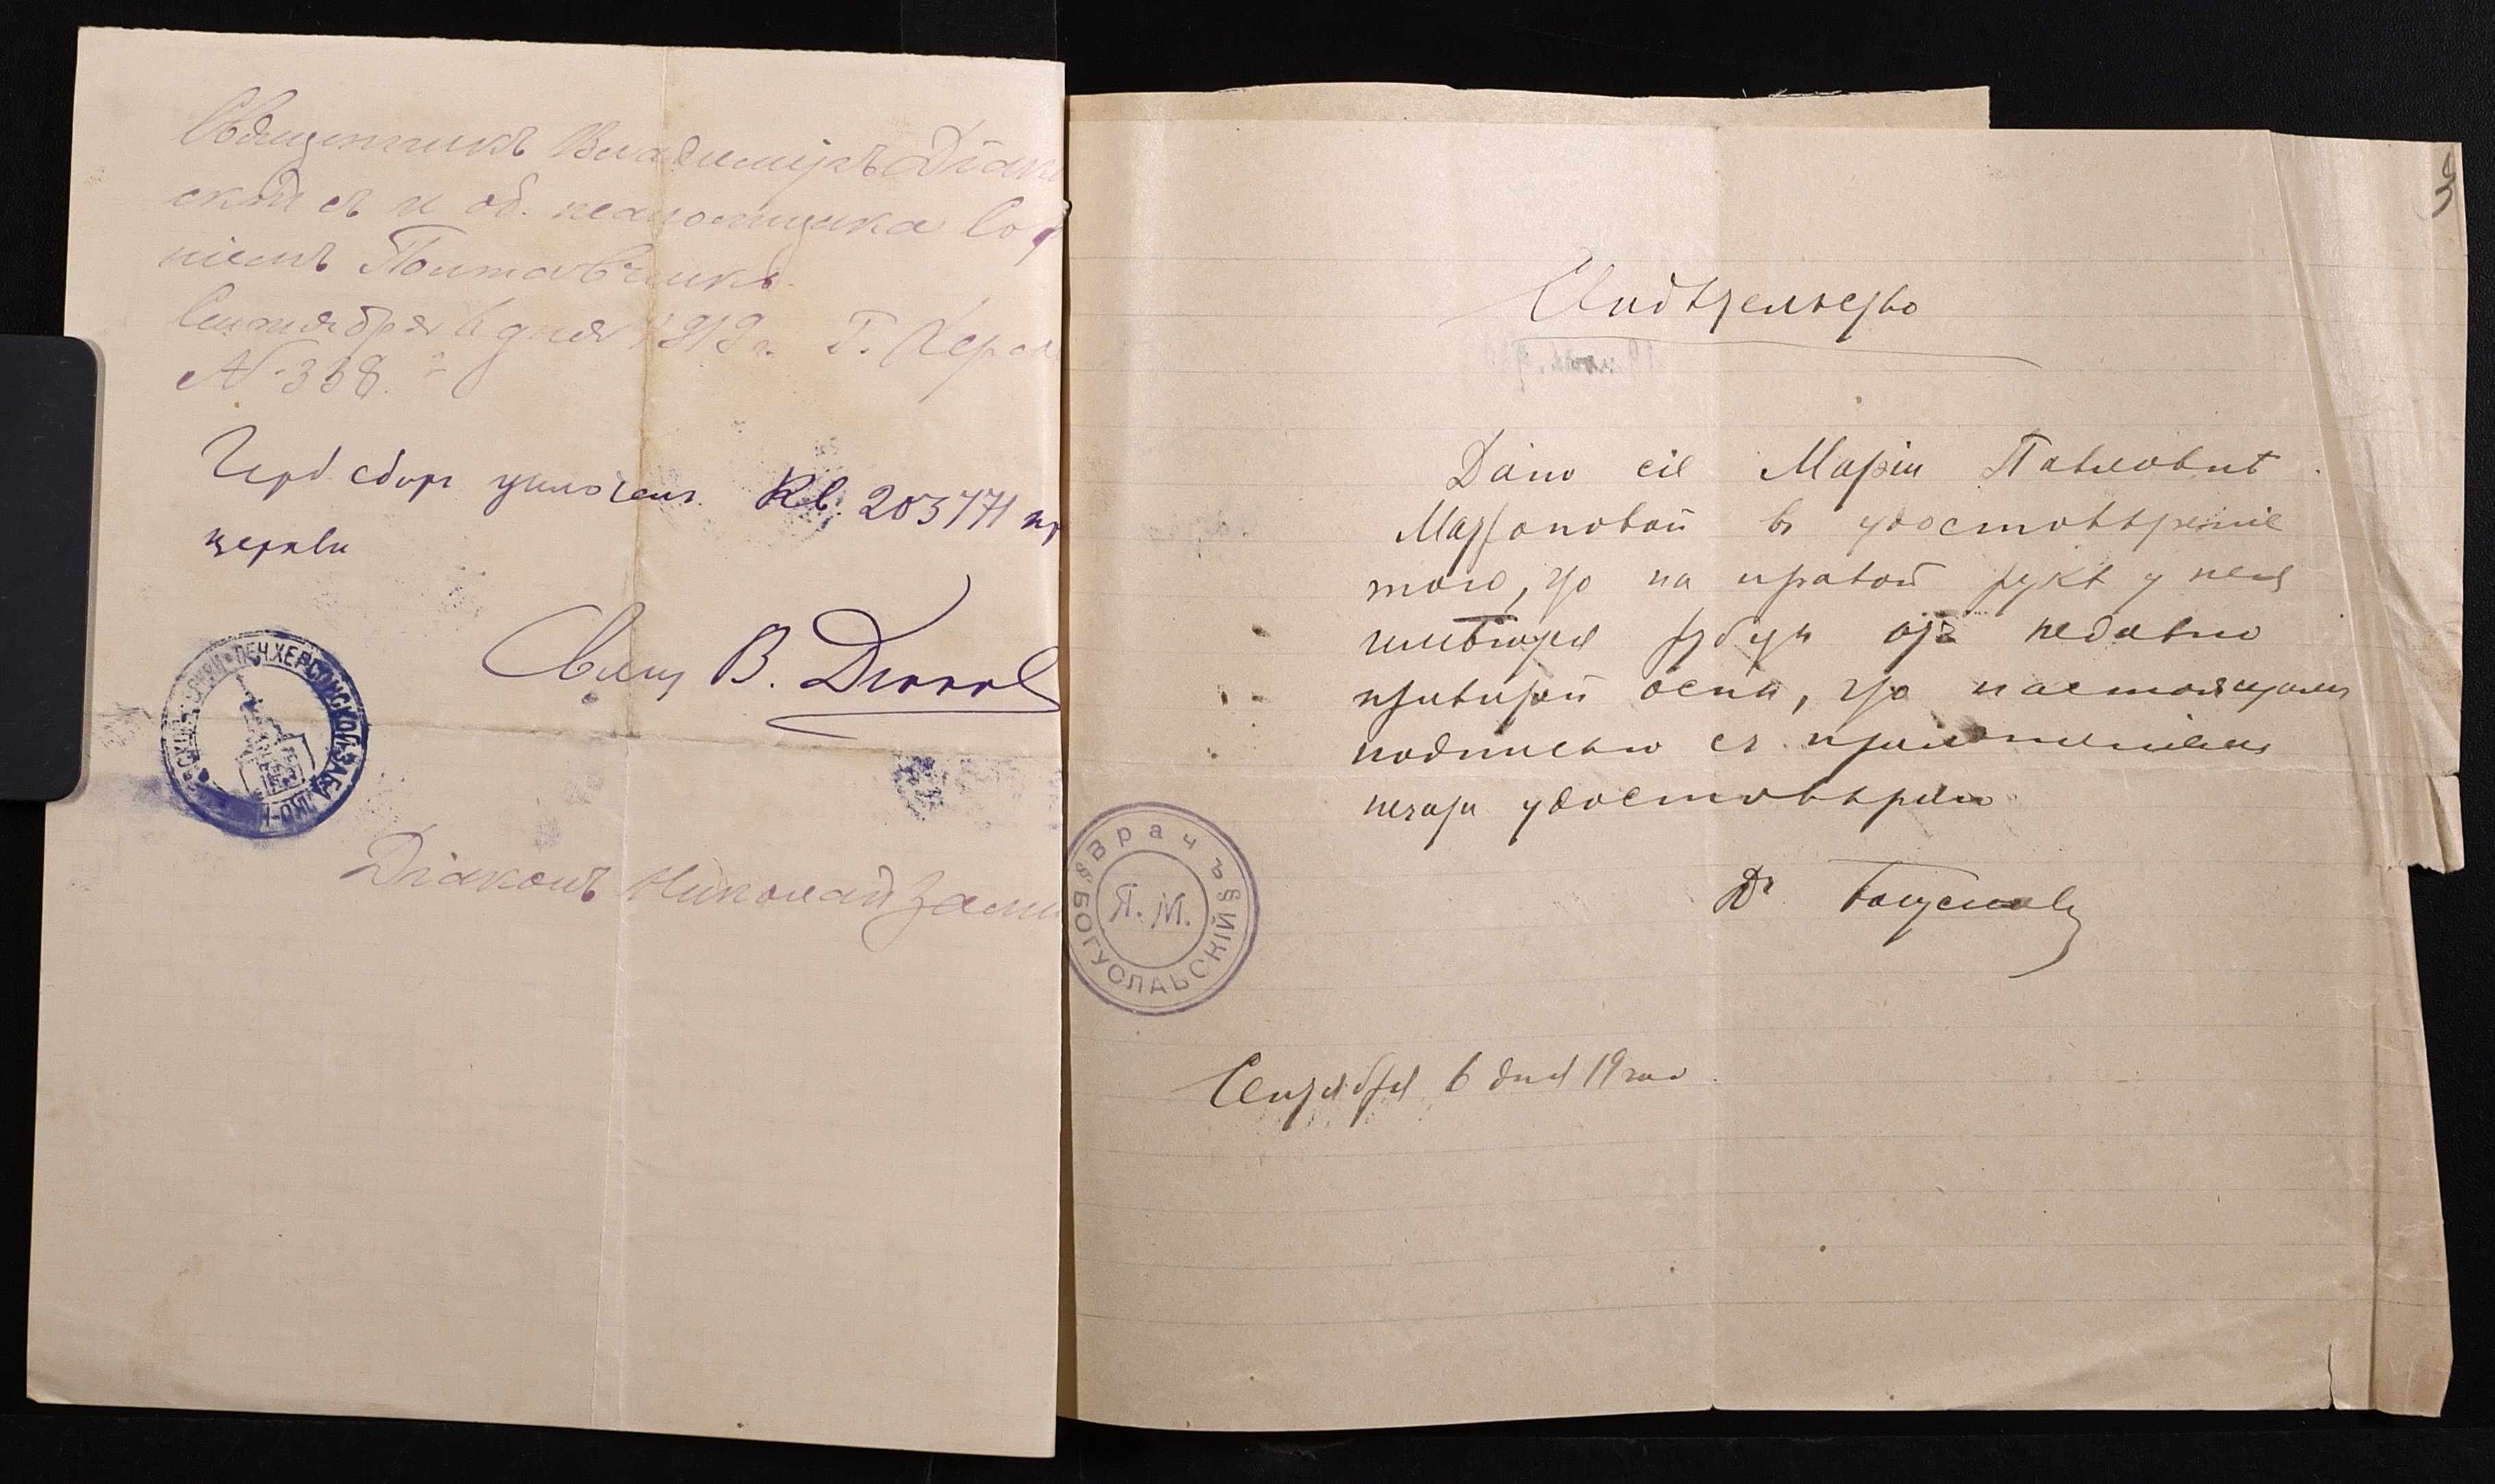 Священникъ Владиміръ Діако
скій съ и об. псаломщика Со
ніемъ Полтавчикъ.
Сентября 6 дня 1919 г. Г. Херс
№ 358.
Герб сборъ уплоченъ. Кв. 203771 пр
церкви
Свящ В. Диков
ПЕЧ. ХЕРСОНСКОЙ ЗАБ
Діаконъ Николай
3
Свидѣтельство
Дано сіе Маріи Павловнѣ
въ удостовѣреніе
того, что на правой рукѣ у нея
имѣются рубцы отъ недавно
привитой оспы, что настоящимъ
подписью съ приложеніемъ
печати удостовѣряю
ВРАЧЪ
Я. М.
БОГУСЛАВСКІЙ
Dr Богуславскій
Сентября 6 дня 19 года